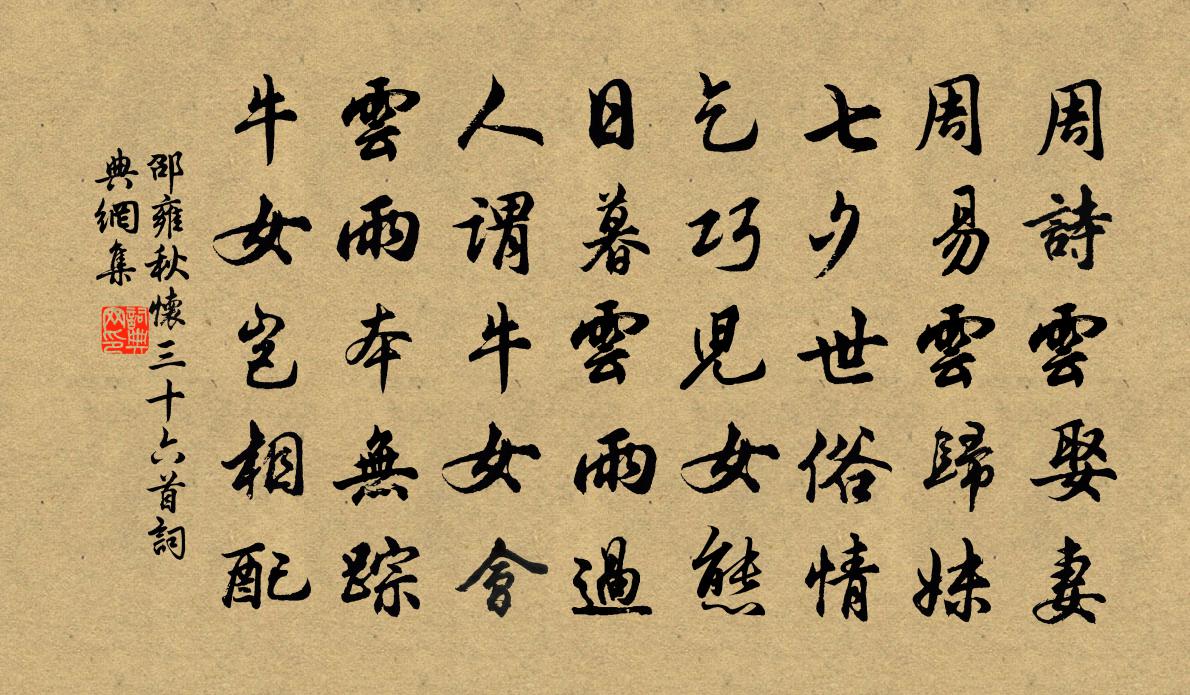 周詩雲娶妻
周易雲歸妹
七夕世俗情
乞巧兒女態
日暮雲雨過
人謂牛女會
雲雨本無踪
牛女豈相配
邵雍秋懷三十六首詞
典網集
詞典網印